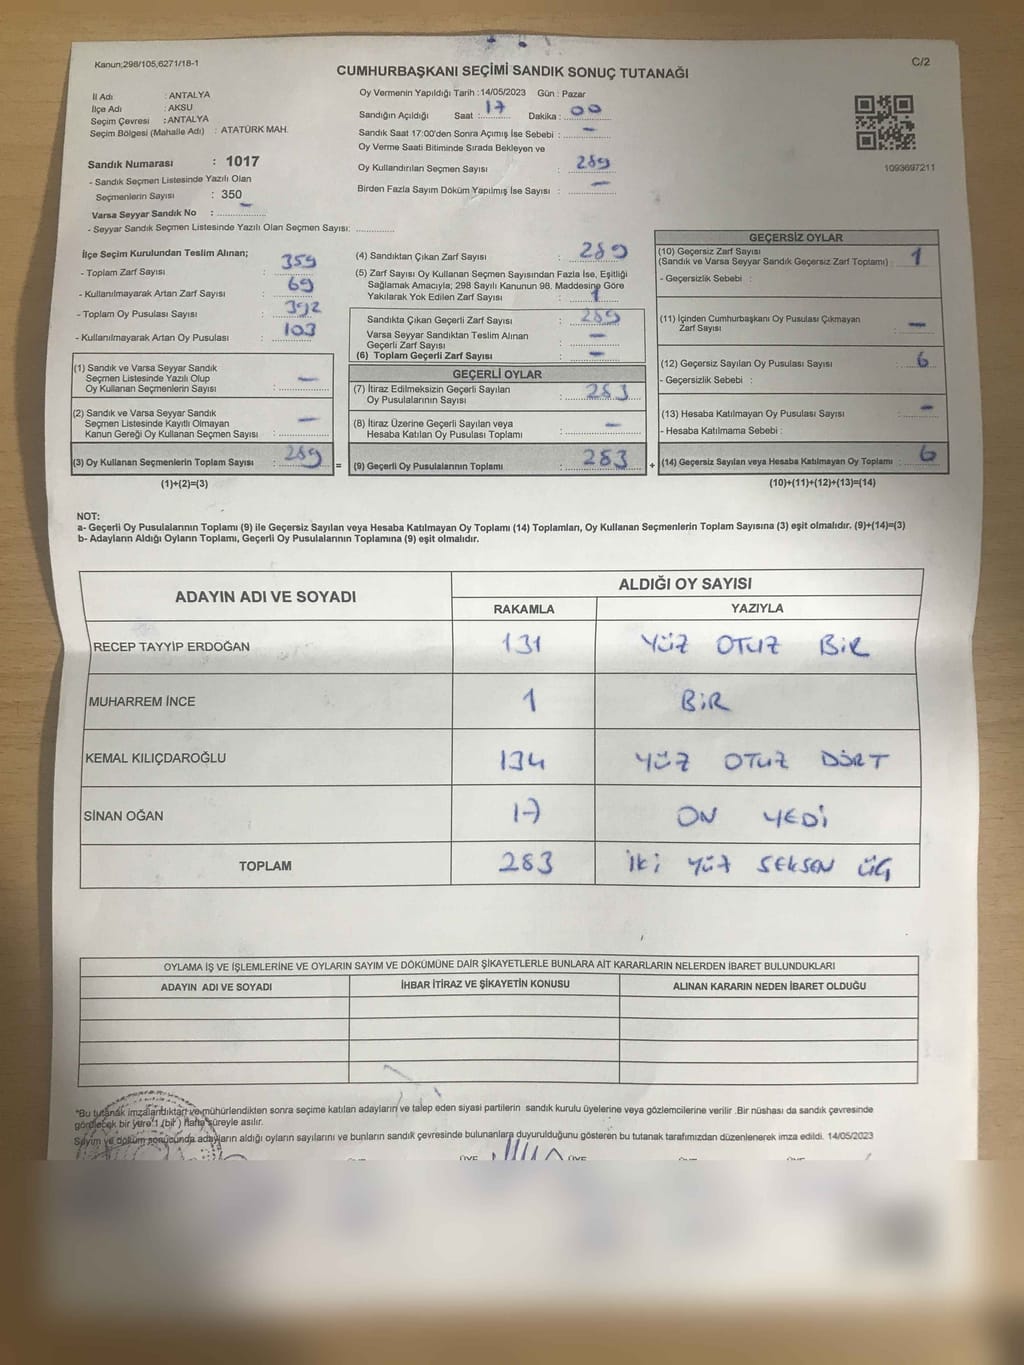 Kanun;298/105,6271/18-1
C/2
CUMHURBAŞKANI SEÇİMİ SANDIK SONUÇ TUTANAĞI
İl Adı : ANTALYA
İlçe Adı : AKSU
Seçim Çevresi : ANTALYA
Seçim Bölgesi (Mahalle Adı) : ATATÜRK MAH.
Sandık Numarası : 1017
- Sandık Seçmen Listesinde Yazılı Olan
Seçmenlerin Sayısı : 350
Varsa Seyyar Sandık No : –
- Seyyar Sandık Seçmen Listesinde Yazılı Olan Seçmen Sayısı:
Oy Vermenin Yapıldığı Tarih :14/05/2023 Gün : Pazar
Sandığın Açıldığı Saat : 17 Dakika : 00
Sandık Saat 17:00'den Sonra Açımış İse Sebebi : –
Oy Verme Saati Bitiminde Sırada Bekleyen ve
Oy Kullandırılan Seçmen Sayısı : 289
Birden Fazla Sayım Döküm Yapılmış İse Sayısı : –
1093697211
İlçe Seçim Kurulundan Teslim Alınan;
- Toplam Zarf Sayısı : 359
- Kullanılmayarak Artan Zarf Sayısı : 69
- Toplam Oy Pusulası Sayısı : 392
- Kullanılmayarak Artan Oy Pusulası : 103
(1) Sandık ve Varsa Seyyar Sandık
Seçmen Listesinde Yazılı Olup
Oy Kullanan Seçmenlerin Sayısı : –
(2) Sandık ve Varsa Seyyar Sandık
Seçmen Listesinde Kayıtlı Olmayan
Kanun Gereği Oy Kullanan Seçmen Sayısı : –
(3) Oy Kullanan Seçmenlerin Toplam Sayısı : 289
(1)+(2)=(3)
(4) Sandıktan Çıkan Zarf Sayısı : 289
(5) Zarf Sayısı Oy Kullanan Seçmen Sayısından Fazla İse, Eşitliği
Sağlamak Amacıyla; 298 Sayılı Kanunun 98. Maddesine Göre
Yakılarak Yok Edilen Zarf Sayısı : 1
Sandıkta Çıkan Geçerli Zarf Sayısı : 289
Varsa Seyyar Sandıktan Teslim Alınan
Geçerli Zarf Sayısı : –
(6) Toplam Geçerli Zarf Sayısı : –
GEÇERLİ OYLAR
(7) İtiraz Edilmeksizin Geçerli Sayılan
Oy Pusulalarının Sayısı : 283
(8) İtiraz Üzerine Geçerli Sayılan veya
Hesaba Katılan Oy Pusulası Toplamı : –
= (9) Geçerli Oy Pusulalarının Toplamı : 283
GEÇERSİZ OYLAR
(10) Geçersiz Zarf Sayısı
(Sandık ve Varsa Seyyar Sandık Geçersiz Zarf Toplamı) : 1
- Geçersizlik Sebebi :
(11) İçinden Cumhurbaşkanı Oy Pusulası Çıkmayan
Zarf Sayısı : –
(12) Geçersiz Sayılan Oy Pusulası Sayısı : 6
- Geçersizlik Sebebi :
(13) Hesaba Katılmayan Oy Pusulası Sayısı : –
- Hesaba Katılmama Sebebi :
+ (14) Geçersiz Sayılan veya Hesaba Katılmayan Oy Toplamı : 6
(10)+(11)+(12)+(13)=(14)
NOT:
a- Geçerli Oy Pusulalarının Toplamı (9) ile Geçersiz Sayılan veya Hesaba Katılmayan Oy Toplamı (14) Toplamları, Oy Kullanan Seçmenlerin Toplam Sayısına (3) eşit olmalıdır. (9)+(14)=(3)
b- Adayların Aldığı Oyların Toplamı, Geçerli Oy Pusulalarının Toplamına (9) eşit olmalıdır.
ADAYIN ADI VE SOYADI
ALDIĞI OY SAYISI
RAKAMLA YAZIYLA
RECEP TAYYİP ERDOĞAN 131 YÜZ OTUZ BİR
MUHARREM İNCE 1 BİR
KEMAL KILIÇDAROĞLU 134 YÜZ OTUZ DÖRT
SİNAN OĞAN 17 ON YEDİ
TOPLAM 283 İKİ YÜZ SEKSEN ÜÇ
OYLAMA İŞ VE İŞLEMLERİNE VE OYLARIN SAYIM VE DÖKÜMÜNE DAİR ŞİKAYETLERLE BUNLARA AİT KARARLARIN NELERDEN İBARET BULUNDUKLARI
ADAYIN ADI VE SOYADI İHBAR İTİRAZ VE ŞİKAYETİN KONUSU ALINAN KARARIN NEDEN İBARET OLDUĞU
*Bu tutanak imzalandıktan ve mühürlendikten sonra seçime katılan adayların ve talep eden siyasi partilerin sandık kurulu üyelerine veya gözlemcilerine verilir .Bir nüshası da sandık çevresinde
görülecek bir yere 1 (bir ) hafta süreyle asılır.
Sayım ve döküm sonucunda adayların aldığı oyların sayılarını ve bunların sandık çevresinde bulunanlara duyurulduğunu gösteren bu tutanak tarafımızdan düzenlenerek imza edildi. 14/05/2023